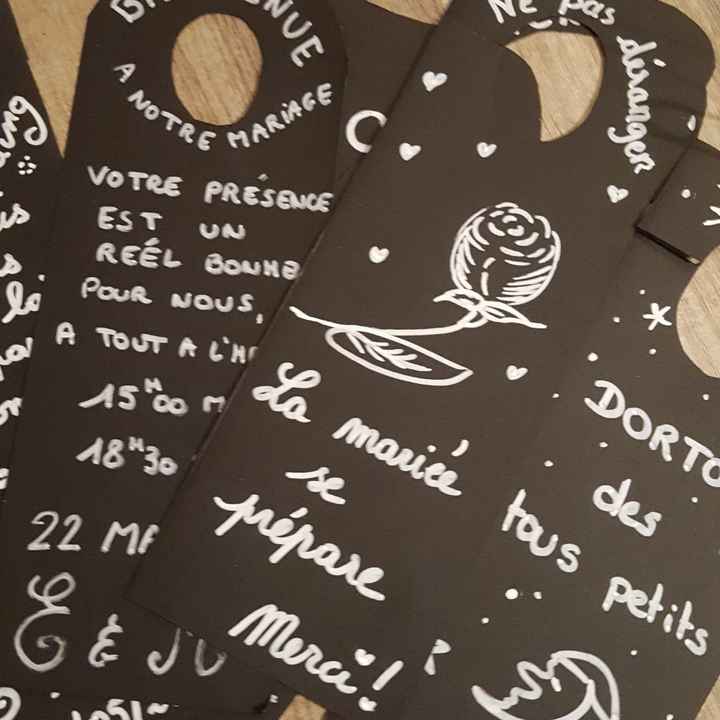 BIENVENUE
A NOTRE MARIAGE
VOTRE PRÉSENCE
EST UN
REÉL BONHE
POUR NOUS,
A TOUT A L'H
15H00 M
18H30
22 MA
E &
Ne pas déranger
La mariée
se
prépare
Merci!
DORTO
des
tous petits